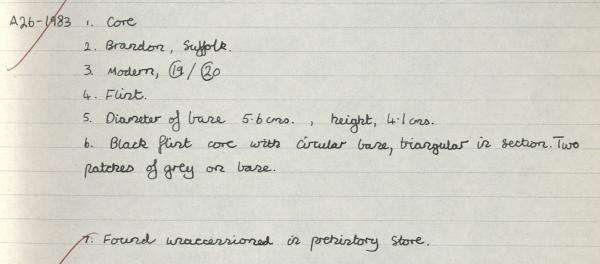 A26-1983 1. Core
2. Brandon, Suffolk.
3. Modern, 19/20
4. Flint.
5. Diameter of base 5.6 cms., height, 4.1 cms.
6. Black flint core with circular base, triangular in section. Two
patches of grey on base.
7. Found unaccessioned in prehistory store.